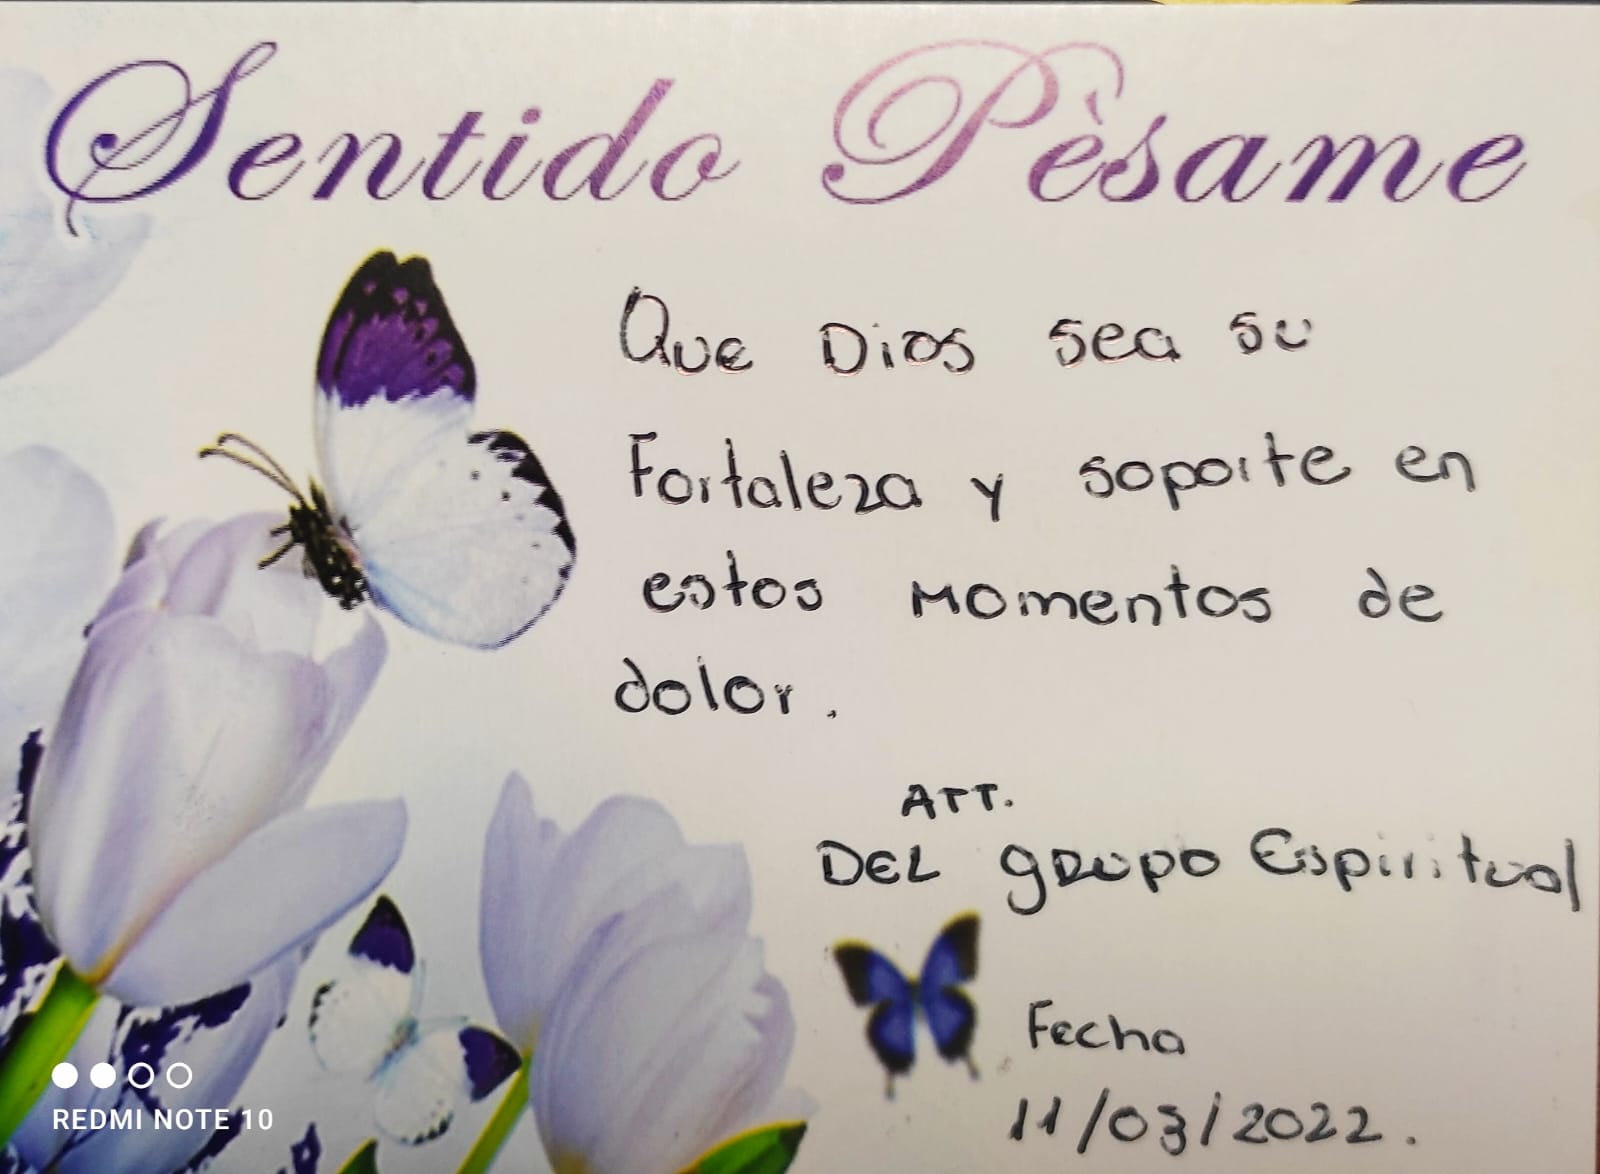 Sentido Pèsame
Que Dios sea su
Fortaleza y soporte en
estos momentos de
dolor.
ATT.
DEL grupo Espiritual
Fecha
11/03/2022.
REDMI NOTE 10